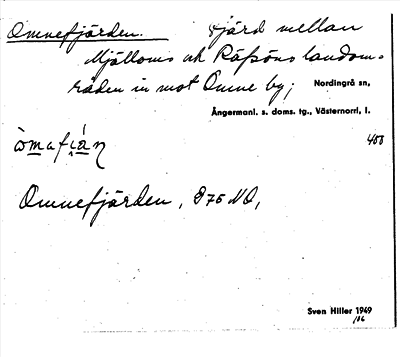 Omnefjärden. Fjärd mellan
Mjälloms och Räfsöns landom-
råden in mot Omne by; Nordingrå sn,
Ångermanl. s. doms. tg., Västernorrl. l.
Omnefjärden, 875 NO,
Sven Hiller 1949